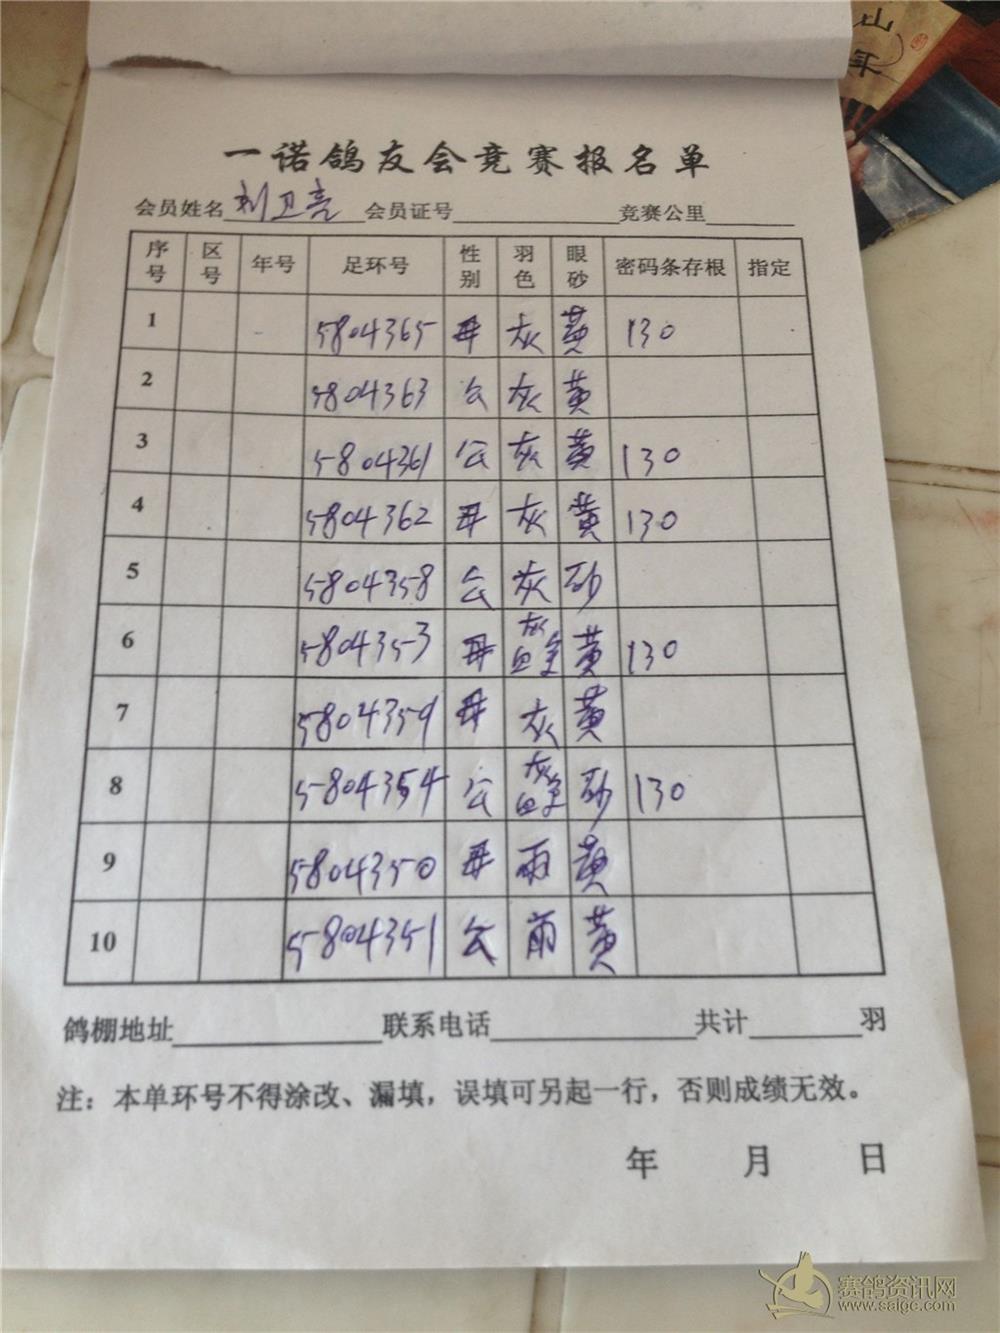 山
年
一诺鸽友会竞赛报名单
会员姓名 刘卫亮 会员证号 竞赛公里
序号 区号 年号 足环号 性别 羽色 眼砂 密码条存根 指定
1 5804365 母 灰 黄 130
2 5804363 公 灰 黄
3 5804361 公 灰 黄 130
4 5804362 母 灰 黄 130
5 5804358 公 灰 砂
6 5804353 母 灰白条 黄 130
7 5804359 母 灰 黄
8 5804354 公 灰白条 砂 130
9 5804350 母 雨 黄
10 5804351 公 雨 黄
鸽棚地址 联系电话 共计 羽
注：本单环号不得涂改、漏填，误填可另起一行，否则成绩无效。
年 月 日
赛鸽资讯网
www.saigc.com